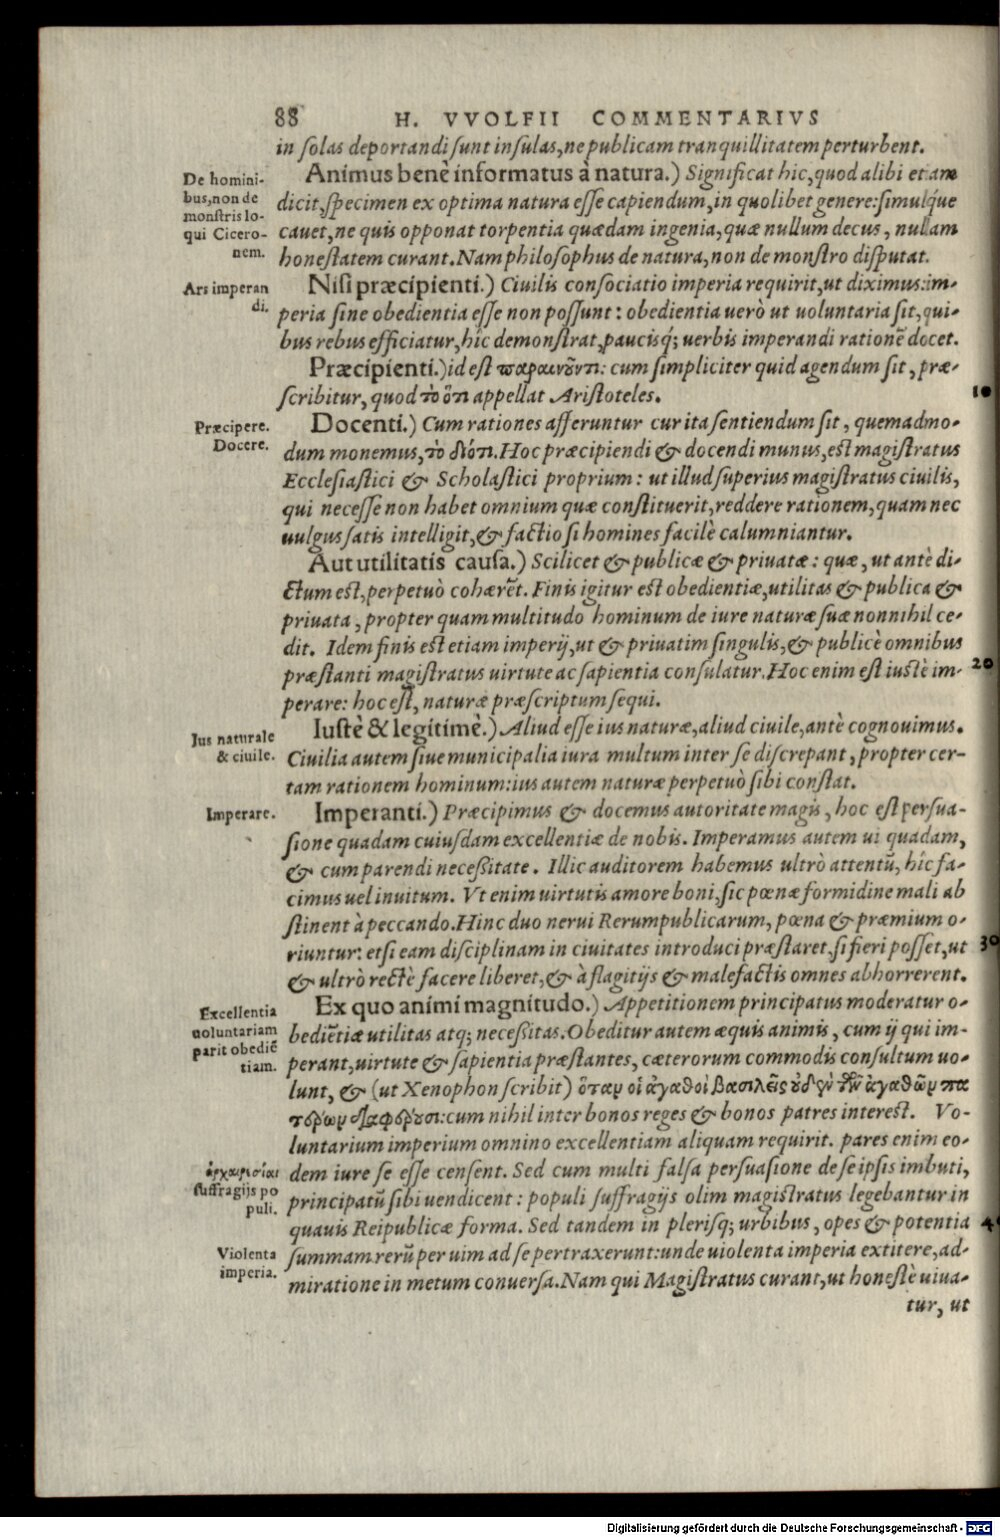 88 H. VVOLFII COMMENTARIVS
in solas deportandi sunt insulas, ne publicam tranquillitatem perturbent.
De homini-
bus, non de
monstris lo-
qui Cicero-
nem.
Animus benè informatus à natura.) Significat hic, quod alibi etiam
dicit, specimen ex optima natura esse capiendum, in quolibet genere: simulq́ue
cauet, ne quis opponat torpentia quædam ingenia, quæ nullum decus, nullam
honestatem curant. Nam philosophus de natura, non de monstro disputat.
Ars imperan
di.
Nisi præcipienti.) Ciuilis consociatio imperia requirit, ut diximus: im-
peria sine obedientia esse non possunt: obedientia uerò ut uoluntaria sit, qui-
bus rebus efficiatur, hîc demonstrat, paucisq́; uerbis imperandi rationē docet.
Præcipienti.) id est παραινοῦντι: cum simpliciter quid agendum sit, præ-
scribitur, quod τὸ ὅτι appellat Aristoteles.
10
Præcipere.
Docere.
Docenti.) Cum rationes afferuntur cur ita sentiendum sit, quemadmo-
dum monemus, τὸ διότι. Hoc præcipiendi & docendi munus, est magistratus
Ecclesiastici & Scholastici proprium: ut illud superius magistratus ciuilis,
qui necesse non habet omnium quæ constituerit, reddere rationem, quam nec
uulgus satis intelligit, & factiosi homines facilè calumniantur.
Aut utilitatis causa.) Scilicet & publicæ & priuatæ: quæ, ut antè di-
ctum est, perpetuò cohærēt. Finis igitur est obedientiæ, utilitas & publica &
priuata, propter quam multitudo hominum de iure naturæ suæ nonnihil ce-
dit. Idem finis est etiam imperij, ut & priuatim singulis, & publicè omnibus
præstanti magistratus uirtute ac sapientia consulatur. Hoc enim est iustè im-
20
perare: hoc est, naturæ præscriptum sequi.
Ius naturale
& ciuile.
Iustè & legitimè.) Aliud esse ius naturæ, aliud ciuile, antè cognouimus.
Ciuilia autem siue municipalia iura multum inter se discrepant, propter cer-
tam rationem hominum: ius autem naturæ perpetuò sibi constat.
Imperare.
Imperanti.) Præcipimus & docemus autoritate magis, hoc est persua-
sione quadam cuiusdam excellentiæ de nobis. Imperamus autem ui quadam,
& cum parendi necessitate. Illic auditorem habemus ultrò attentū, hîc fa-
cimus uel inuitum. Vt enim uirtutis amore boni, sic pœnæ formidine mali ab
stinent à peccando. Hinc duo nerui Rerumpublicarum, pœna & præmium o-
riuntur: etsi eam disciplinam in ciuitates introduci præstaret, si fieri posset, ut
30
& ultrò rectè facere liberet, & à flagitijs & malefactis omnes abhorrerent.
Excellentia
uoluntariam
parit obediē
tiam.
Ex quo animi magnitudo.) Appetitionem principatus moderatur o-
bediētiæ utilitas atq; necessitas. Obeditur autem æquis animis, cum ij qui im-
perant, uirtute & sapientia præstantes, cæterorum commodis consultum uo-
lunt, & (ut Xenophon scribit) ὅταν οἱ ἀγαθοὶ βασιλεῖς οὐδὲν τῶν ἀγαθῶν πα
τέρων διαφέρουσι: cum nihil inter bonos reges & bonos patres interest. Vo-
luntarium imperium omnino excellentiam aliquam requirit. pares enim eo-
ἀρχαιρεσίαι
suffragijs po
puli.
dem iure se esse censent. Sed cum multi falsa persuasione de seipsis imbuti,
principatū sibi uendicent: populi suffragijs olim magistratus legebantur in
quauis Reipublicæ forma. Sed tandem in plerisq; urbibus, opes & potentia
Violenta
imperia.
summam rerū per uim ad se pertraxerunt: unde uiolenta imperia extitere, ad-
miratione in metum conuersa. Nam qui Magistratus curant, ut honestè uiua-
tur, ut
Digitalisierung gefördert durch die Deutsche Forschungsgemeinschaft - DFG